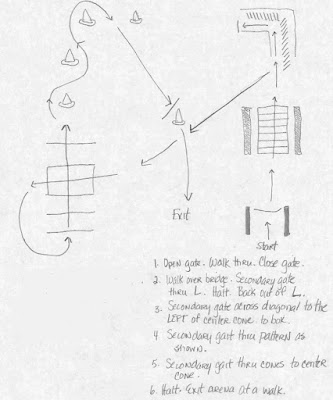 Exit
Start
1. Open gate. Walk thru. Close gate.
2. Walk over bridge. Secondary gate
thru L. Halt. Back out of L.
3. Secondary gate across diagonal to the
LEFT of center cone to box.
4 Secondary gait thru pattern as
shown.
5. Secondary gait thru cones to center
cone.
6. Halt. Exit arena at a walk.